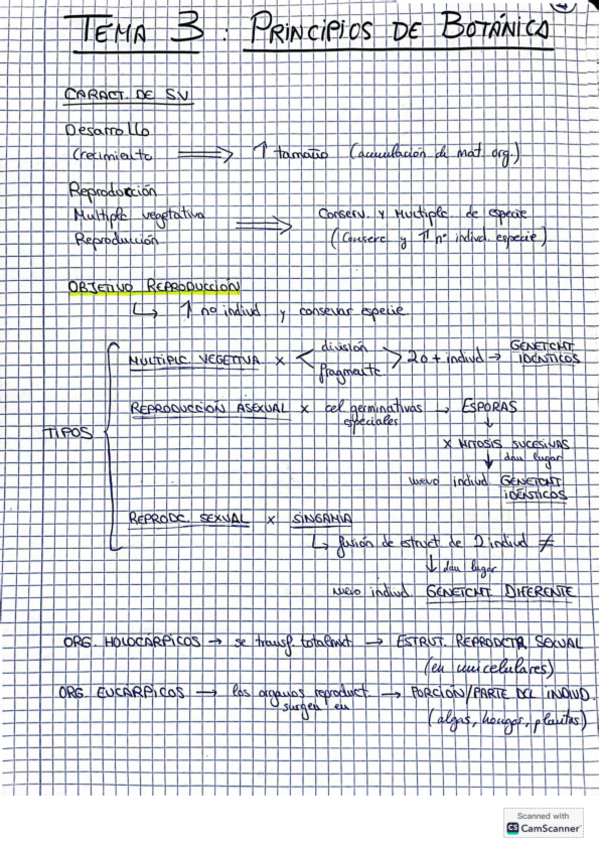 TEMA 3 : PRINCIPIOS DE BOTÁNICA
CARACT. DE S.V
Desarrollo
Crecimiento ⟹ ↑ tamaño (acumulación de mat. org.)
Reproducción
Multiplc vegetativa ⟹ Conserv. y Multiplc. de especie
Reproducción (Conserc y ↑ nº individ. especie)
OBJETIVO REPRODUCCIÓN
↳ ↑ no individ y consevar especie
TIPOS
MULTIPLC. VEGETIVA x < división / fragmentc > 2 o + individ → GENETCMT IDÉNTICOS
REPRODUCCIÓN ASEXUAL x cel germinativas especiales → ESPORAS
↓
x MITOSIS SUCESIVAS
↓ dan lugar
nuevo individ GENETCMT IDÉNTICOS
REPRODC. SEXUAL x SINGAMIA
↳ fusión de estruct de 2 individ ≠
↓ dan lugar
nuevo individ. GENETCMT. DIFERENTE
ORG. HOLOCÁRPICOS → se transf. totalmnt → ESTRUT. REPRODCTR SEXUAL
(en unicelulares)
ORG. EUCÁRPICOS → los organos reproduct. surgen en → PORCIÓN/PARTE DEL INDIVID.
(algas, hongos, plantas)
Scanned with
CS CamScanner